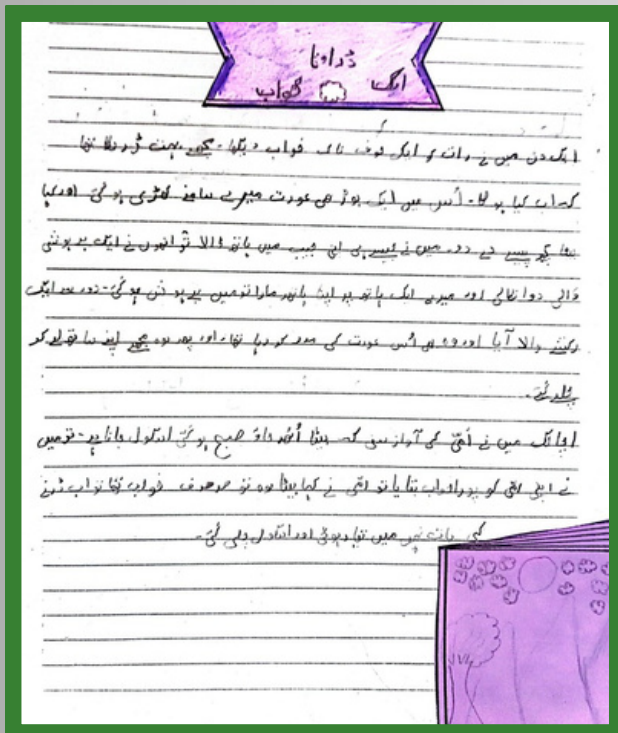 ایک ڈراونا
خواب
ایک دن میں نے رات کو ایک خوف ناک خواب دیکھا۔ مجھے بہت ڈر لگا تھا
کہ اب کیا ہو گا۔ اُس میں ایک بوڑھی عورت میرے سامنے کھڑی ہو گئی اور کہا
بیٹا کچھ پیسے دے دو۔ میں نے جیسے ہی اپنی جیب میں ہاتھ ڈالا تو انھوں نے ایک بے ہوشی
والی دوا نکالی اور میرے ایک ہاتھ پر اپنا ہاتھ مارا تو میں بے ہوش ہو گئی۔ دور سے ایک
رکشے والا آیا اور وہ بھی اُس عورت کی مدد کر رہا تھا، اور پھر وہ مجھے اپنے ساتھ لے کر
چلے گئے۔
اچانک میں نے اُمّی کی آواز سنی کہ بیٹا اُٹھ جاؤ صبح ہو گئی اسکول جانا ہے۔ تو میں
نے اپنی امّی کو پورا خواب بتایا تو امّی نے کہا بیٹا وہ تو صرف خواب تھا تو اب ڈرنے
کی بات نہیں میں تیار ہوئی اور اسکول چلی گئی۔